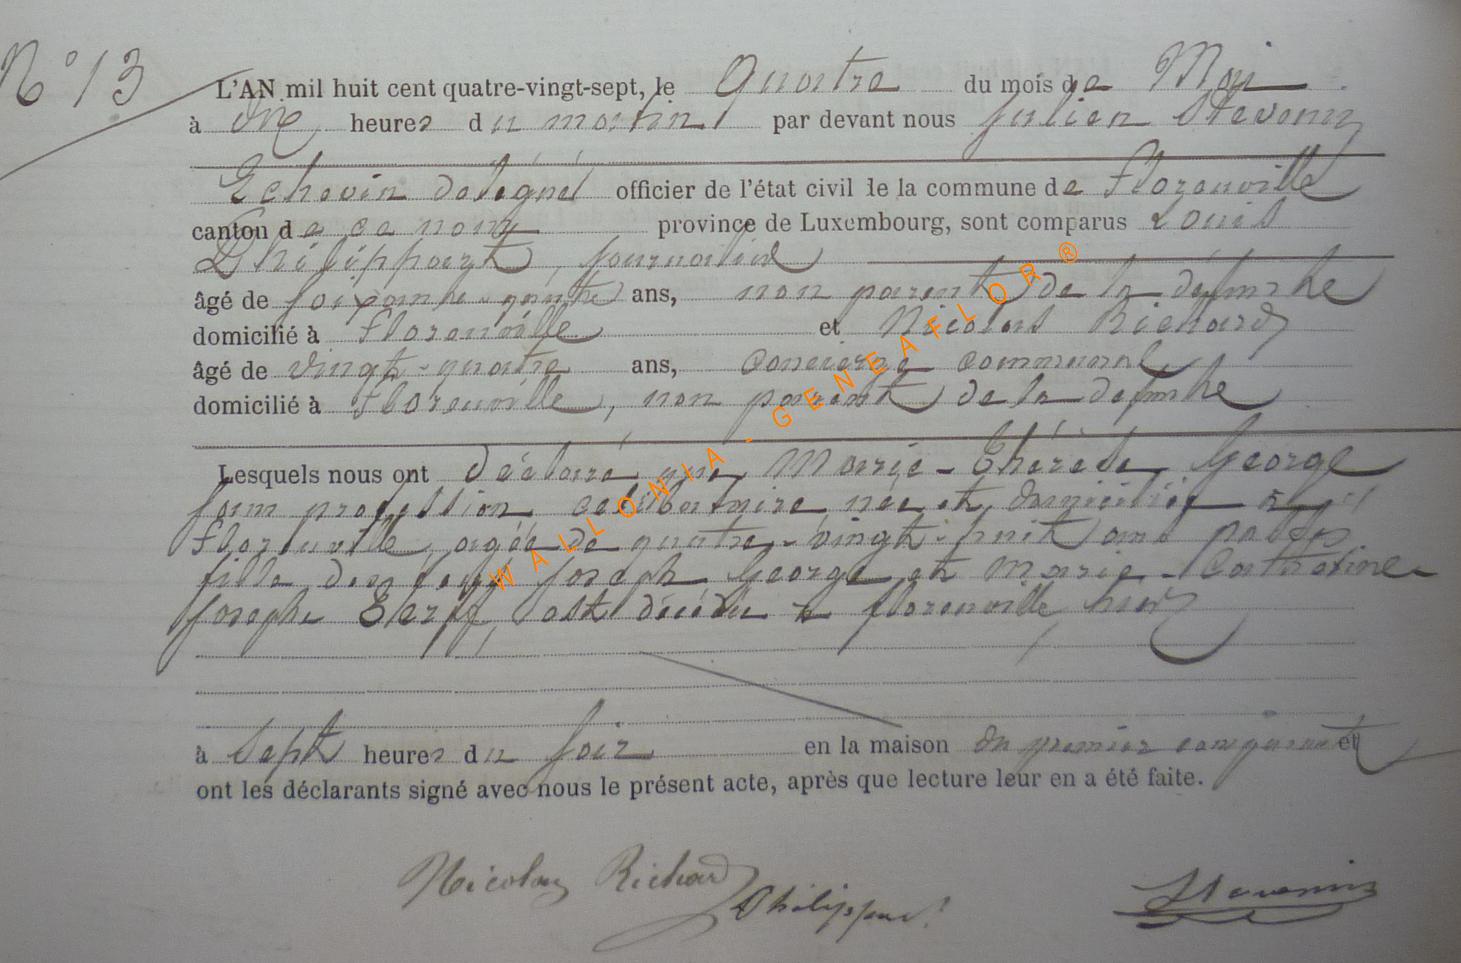 N° 13
L'AN mil huit cent quatre-vingt-sept, le Quatre du mois de Mai
à dix heures du matin par devant nous Julien Stevenin
Echevin délégué officier de l'état civil de la commune de Florenville
canton de ce nom province de Luxembourg, sont comparus Louis
Philippart, journalier
âgé de soixante-quinze ans, non parent de la défunte
domicilié à Florenville et Nicolas Richard
âgé de vingt-quatre ans, concierge communal
domicilié à Florenville, non parent de la défunte
Lesquels nous ont déclaré que Marie-Thérèse George
sans profession célibataire née et domiciliée à
Florenville, agée de quatre-vingt-huit ans passés
fille des feux Joseph George et Marie-Catherine
Joseph est décédée à Florenville, hier
à sept heures du soir en la maison du premier comparant et
ont les déclarants signé avec nous le présent acte, après que lecture leur en a été faite.
Nicolas Richard
Philippart
Stevenin
WALLONIA - GENEAFLOR ®